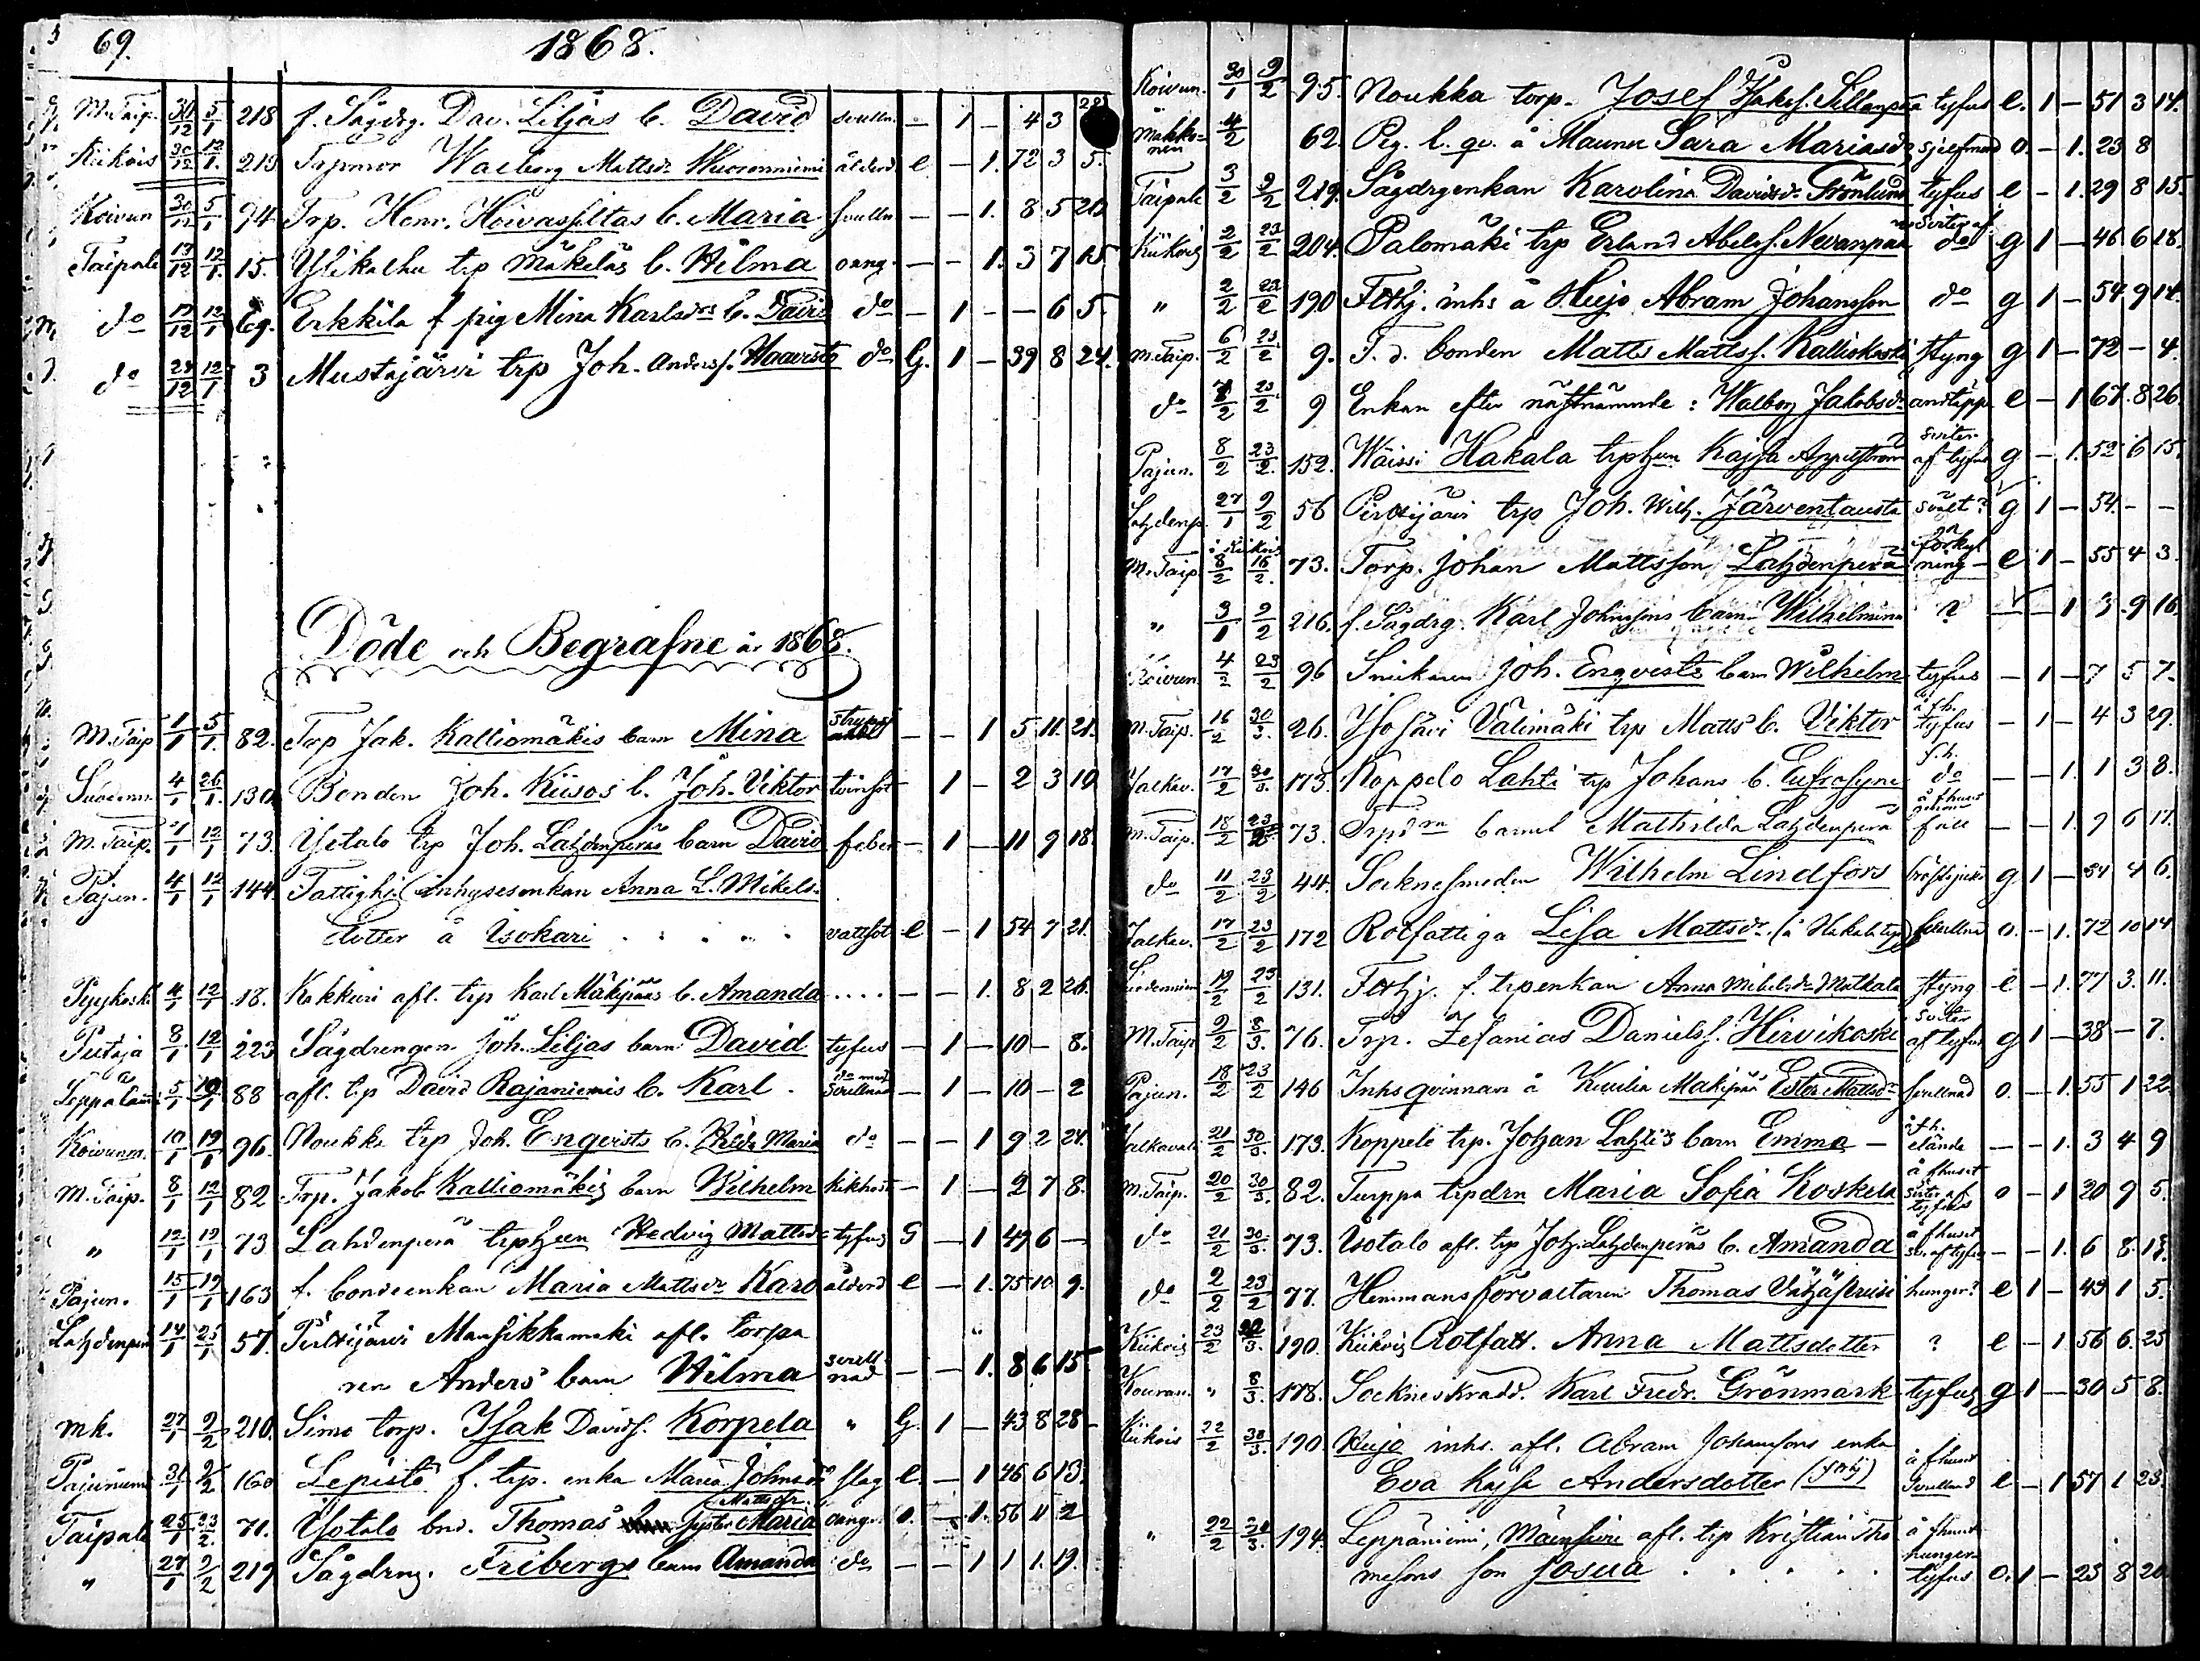 69.
1868.
M. Taip. 30/12 5/1 218 f. Sågdrg. Dav. Liljas b. David svulln. — 1 — 4 3 22
Kiikois 30/12 12/1. 219 Torpmor Walborg Mattsdr ålderd. e — 1. 72 3 5.
Koivun 30/12 5/1 94 Trp. Henr. b. Maria svulln — — 1. 8 5 20
Taipale 19/12 12/1. 15. Ylikalhu trp Mäkeläs b. Hilma oang. — — 1. 3 7 15.
do 19/12 12/1 Erkkilä f pig Mina Karlsdrs b. David do — 1 — — 6 5.
do 24/12 12/1 3 Mustajärvi trp Joh. Anderss. Haavisto do G. 1 — 39 8 24.
Döde och Begrafne år 1868.
M. Taip 1/1 5/1. 82. Trp Jak. Kalliomäkis barn Mina — — 1 5 11. 21.
4/1 26/1. 130. Bonden Joh. Kiisos b. Joh. Viktor tvinsot — 1 — 2 3 19
M. Taip. 1/1 12/1 73. Ylitalo trp Joh. Lahdenperäs barn David feber — 1 — 11 9 18.
Pajun. 4/1 12/1 144. Fattighj. inhysesenkan Anna L. Mikels-
dotter å Isokari . . . . . vattsot e — 1 54 7 21.
Pyykoski 4/1 12/1 18. Kakkuri afl. trp Karl Mäkipääs b. Amanda . . . . — — 1. 8 2 26.
Putaja 8/1 12/1 223 Sågdrengen Joh. Liljas barn David tyfus — 1 — 10 — 8.
5/1 19/1 88 afl. trp David Rajaniemis b. Karl . do med svullnad — 1 — 10 — 2
Koivunm. 10/1 19/1 96. Noukka trp Joh. Enqvists b. Maria do — — 1 9 2 24.
M. Taip. 8/1 12/1 82 Trp. Jakob Kalliomäkis barn Wilhelm kikhost — 1 — 2 7 8.
" 12/1 19/1 73 Lahdenperä trphun Hedvig Mattsdr tyfus G — 1 49 6 —
Pajun. 15/1 19/1 163 f. bondeenkan Maria Mattsdr Karo ålderd e — 1. 75 10 9.
Lahdenperä 14/1 25/1 57. Pirttijärvi Mansikkamäki afl. torpa
ren Anders barn Hilma svull- nad — — 1. 8 6 15
mk. 27/1 2/2 210. Simo torp. Isak Davids. Korpela " G. 1 — 43 8 28 —
Pajuniemi 31/1 160 Lepistö f. trp. enka Maria Johnsdr slag e. — 1 46 6 13.
Taipale 25/1 23/2. 71. Ylitalo bnd. Thomas syster Maria oang. o. — 1. 56 11 2
" 27/1 2/2 219 Sågdrng. Fribergs barn Amanda do — — 1 1 1. 19.
Koivun. 30/1 9/2 95. Noukka torp. Josef Isaks. Sillanpää tyfus e. 1 — 51 3 14.
4/2 62. Pig. å Maunu Sara Mariasdr sjelfmord o. — 1. 23 8
Taipale 3/2 9/2 219. Sågdrgenkan Karolina Davidsdr Grönlund tyfus e — 1. 29 8 15.
Kiikois 2/2 23/2 204. Palomäki trp Erland Abelss. Nevanpää do g 1 — 46 6 18.
" 2/2 23/2 190 Fatthj. inhs å Hujo Abram Johansson do g 1 — 54 9 14.
M. Taip. 6/2 23/2 9. F. d. bonden Matts Mattss. Kalliokoski styng g 1 — 72 — 4.
do 8/2 23/2 9 Enkan efter nästnämnde: Walborg Jakobsdr andtäppa e — 1 67. 8 26.
Pajun. 8/2 23/2. 152. Wäissi Hakala trphun Kajsa sviter af tyfus g — 1. 52 6 15.
Lahdenp. 27/1 9/2 56 Pirttijärvi trp Joh. Wilh. Järventausta svält? g 1 — 54. — —
M. Taip. i Kiikois 8/2 16/2. 73. Torp. Johan Mattsson Lahdenperä förkyl ning — e 1 — 55 4 3.
" 3/1 9/2 216. f. Sågdrg. Karl Johnssons barn Wilhelmina ? — — 1 3. 9 16
Koivun. 4/2 23/2 96 Snickaren Joh. Enqvists barn Wilhelm tyfus — 1 — 7 5 7.
M. Taip. 16/2 30/3. 26. Välimäki trp Matts b. Viktor å fh. tyfus — 1 — 4 3 29.
Jalkav. 17/2 30/3. 173. Koppelo Lahti trp Johans b. Eufrosyne f.h. do — — 1. 1 3 8.
M. Taip. 18/2 73. Trpdrn barnet Mathilda Lahdenperä å fhuset — — 1. 9 6 17.
do 11/2 23/2 44. Socknesmeden Wilhelm Lindfors bröstsjuka g. 1 — 4 6.
Jalkav. 17/2 23/2 172 Rotfattiga Lisa Mattsdr. (å Hakala trp) svullnad o. — 1. 72 10 14
19/2 23/2 131. Fatthj. f. trpenkan Anna Mikelsdr Matkala styng e — 1. 77 3. 11.
M. Taip 9/2 8/3. 76. Trp. Zefanias Daniels. Hirvikoski sviter af tyfus g 1 — 38 — 7.
Pajun. 18/2 23/2 146 Inhsqvinnan å Kuulia Mäkipää Ester Mattsdr svullnad o. — 1. 55 1 22.
Jalkavala 21/2 30/3. 173. Koppelo trp. Johan Lahtis barn Emma — å fh. elände — — 1. 3 4 9
M. Taip. 20/2 30/3. 82. Turppa trpdrn Maria Sofia Koskela å fhuset sviter af tyfus o — 1 20 9 5.
do 21/2 30/3. 73. Isotalo afl. trp Joh. Lahdenperäs b. Amanda å fhuset sv. af tyfus — — 1. 6 8.
do 2/2 23/2 77. Hemmansförvaltaren Thomas hunger? e 1 — 43 1 5.
Kiikois 23/2 30/3. 190. Kiikois Rotfatt. Anna Mattsdotter ? e — 1 56 6. 25
" 8/3. 178. Sockneskradd. Karl Fredr. Grönmark tyfus g 1 — 30 5 8.
Kiikois 22/2 30/3. 190 Hujo inhs. afl. Abram Johanssons enka
Eva Kajsa Andersdotter å fhuset svullnad e — 1 57 1 23.
" 22/2 30/3. 194. Leppäniemi, afl. trp Kristian Tho
messons son Josua . . . . . å fhuset hunger- tyfus o. 1 — 23 8 20